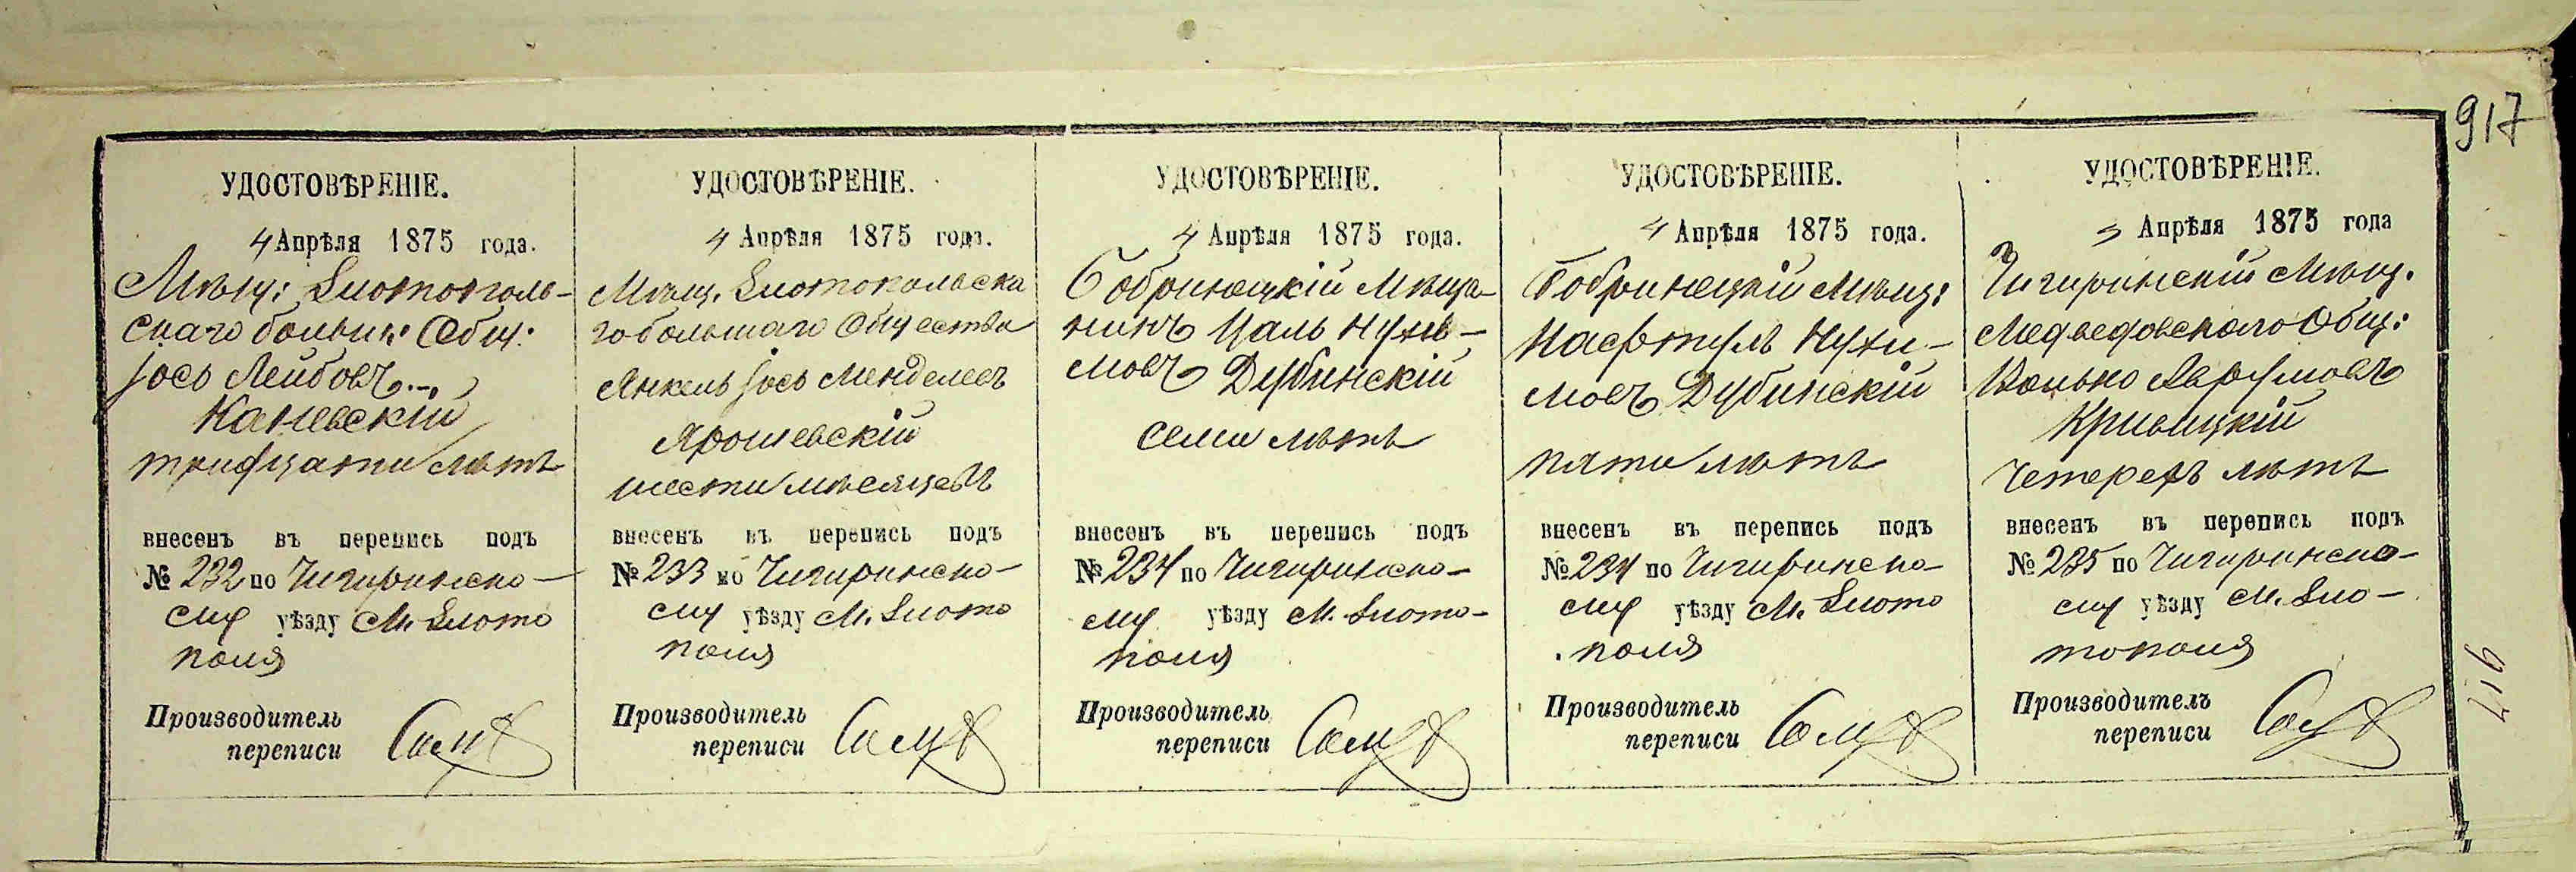 917
УДОСТОВѢРЕНІЕ.
4 Апрѣля 1875 года.
Мѣщ: Златополь-
скаго больш: Общ:
Іось Лейбовъ
Каневскій
тридцати лѣтъ
внесенъ въ перепись подъ
№ 232 по Чигиринско-
му уѣзду М. Злато
поля
Производитель
переписи
УДОСТОВѢРЕНІЕ.
4 Апрѣля 1875 года.
Мѣщ. Златопольска
го большаго Общества
Янкель Іось Менделевъ
Ярошевскій
шести мѣсяцевъ
внесенъ въ перепись подъ
№ 233 по Чигиринско-
му уѣзду М. Злато
поля
Производитель
переписи
УДОСТОВѢРЕНІЕ.
4 Апрѣля 1875 года.
Бобринецкій Мѣща-
нинъ Цаль Нухи-
мовъ Дубинскій
семи лѣтъ
внесенъ въ перепись подъ
№ 234 по Чигиринско-
му уѣзду М. Злато-
поля
Производитель
переписи
УДОСТОВѢРЕНІЕ.
4 Апрѣля 1875 года.
Бобринецкій Мѣщ:
Насфтуль Нухи-
мовъ Дубинскій
пяти лѣтъ
внесенъ въ перепись подъ
№ 234 по Чигиринско-
му уѣзду М. Злато
поля
Производитель
переписи
УДОСТОВѢРЕНІЕ.
5 Апрѣля 1875 года
Чигиринскій Мѣщ.
Медведовскаго Общ:
Волько Аврумовъ
Кривицкій
Четерехъ лѣтъ
внесенъ въ перепись подъ
№ 235 по Чигиринско-
му уѣзду М. Зла-
тополя
Производитель
переписи
917